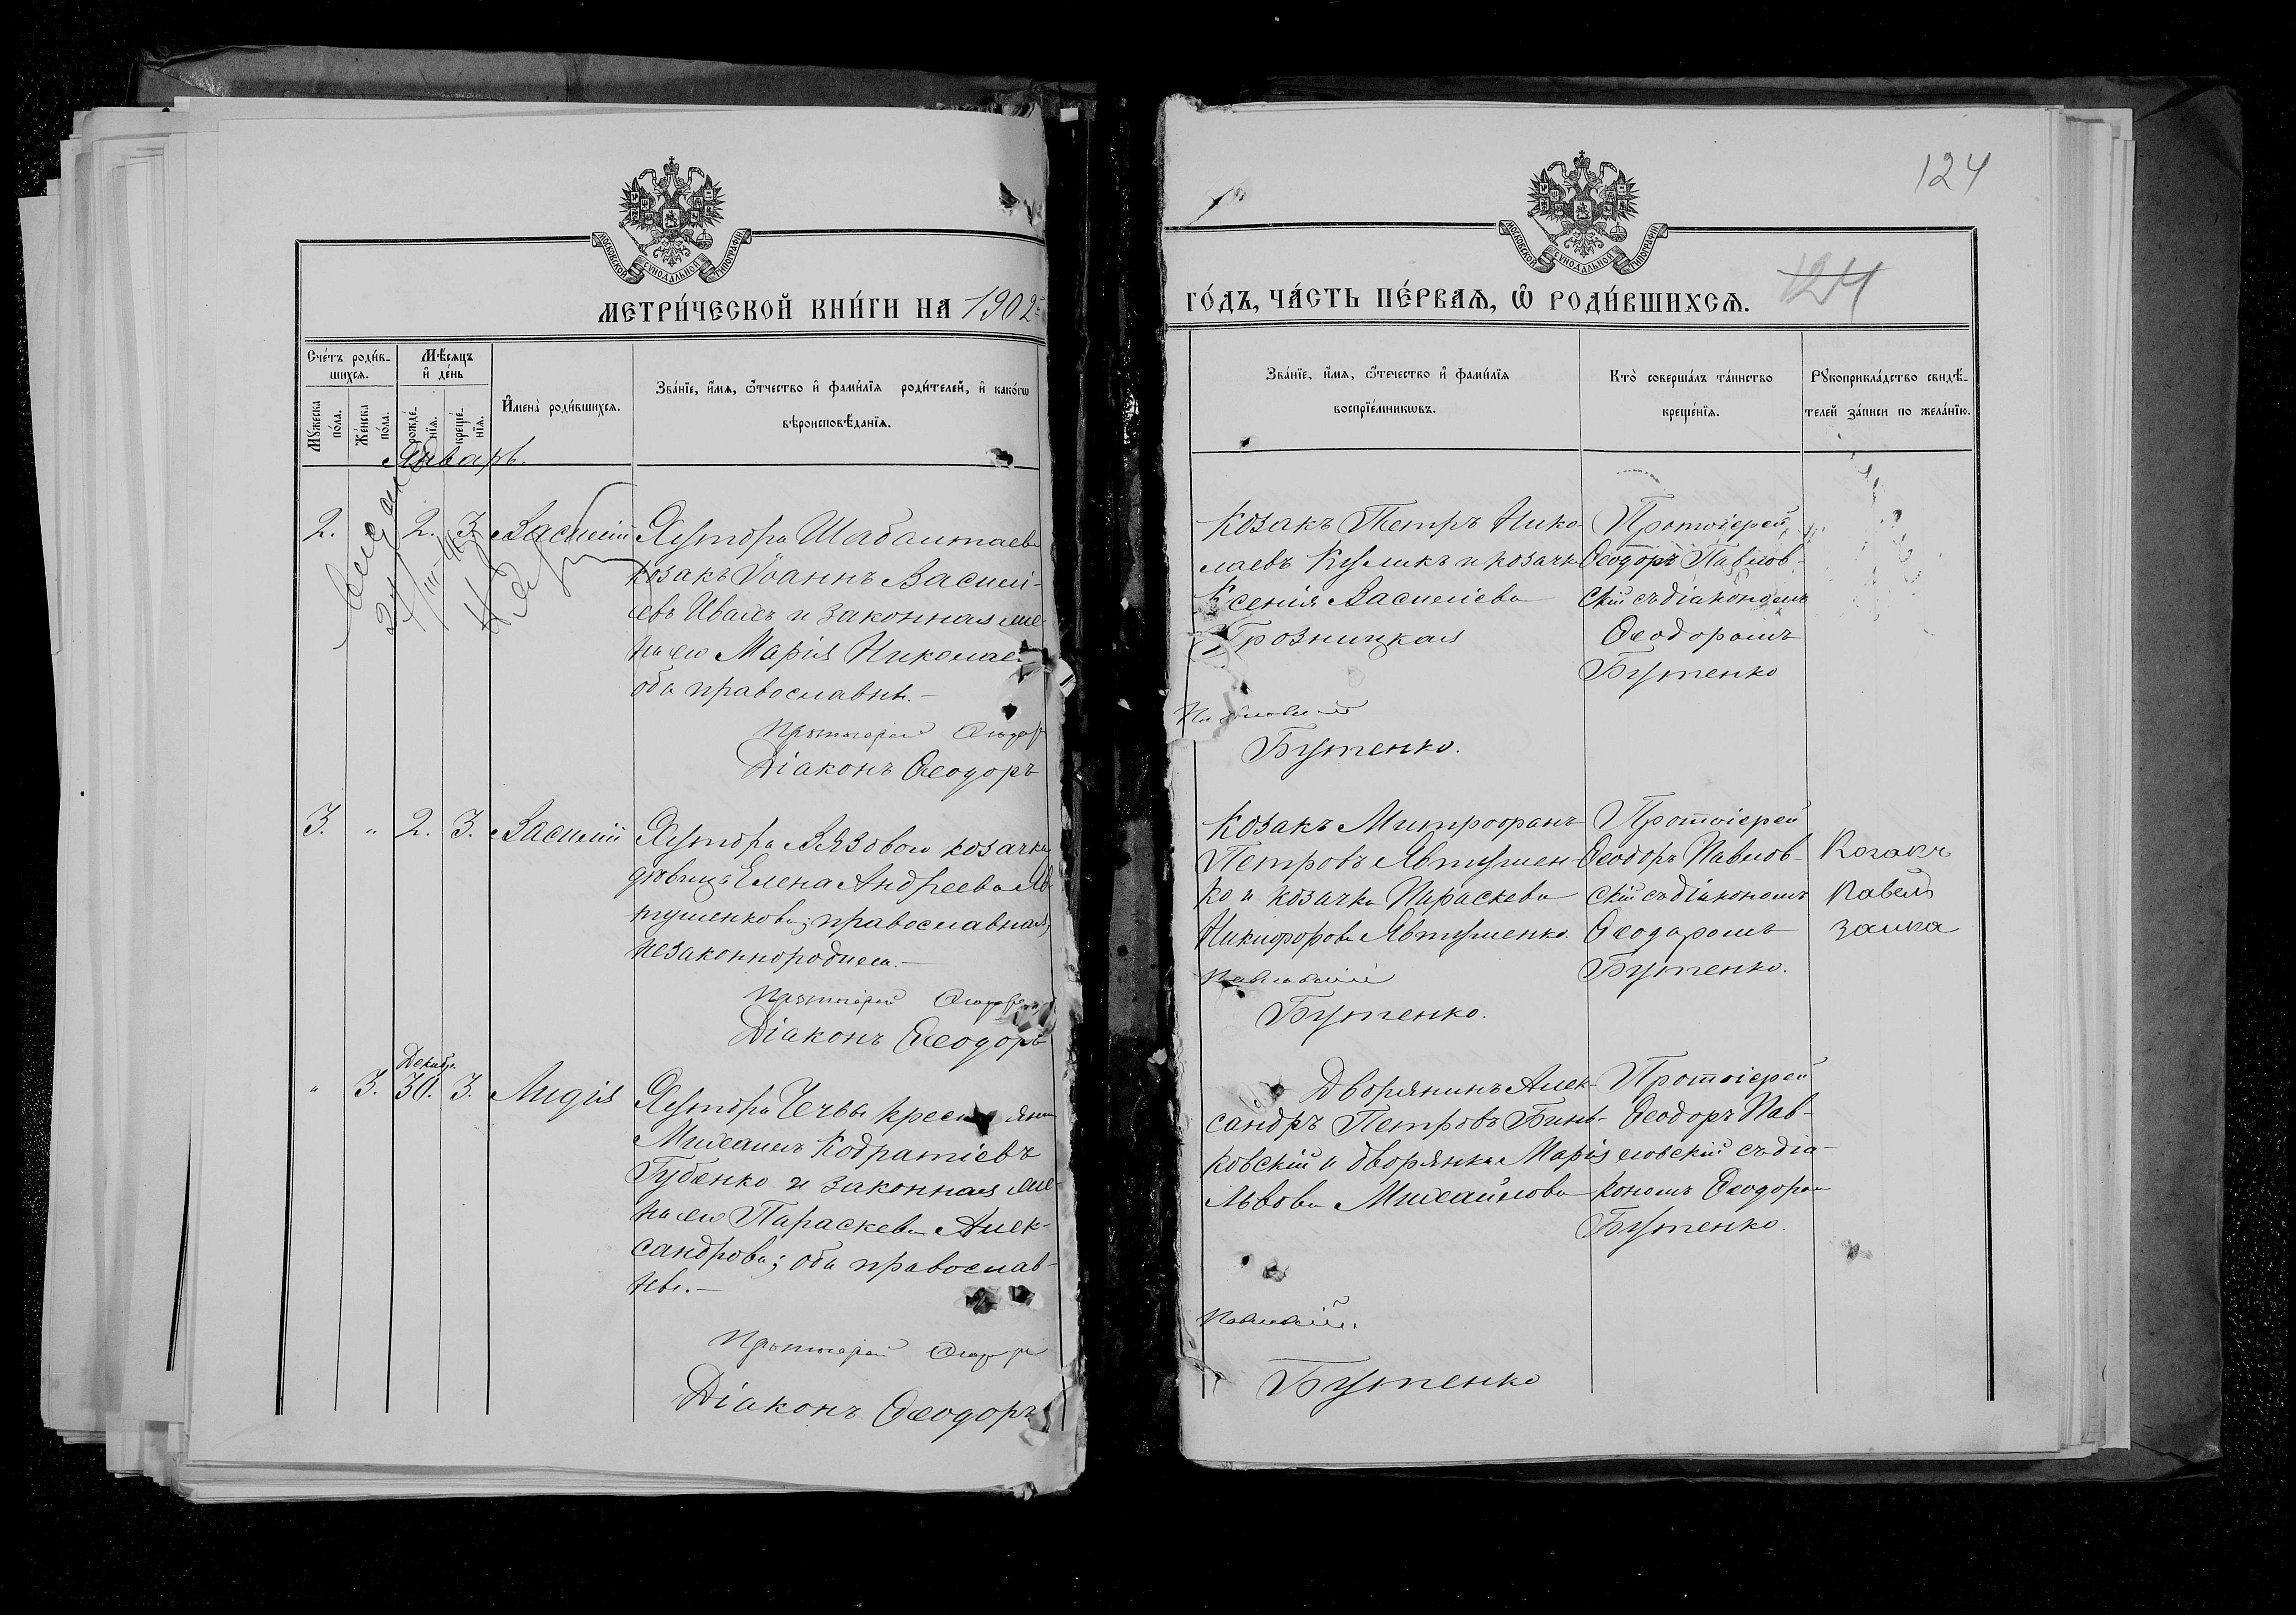 124
МОСКОВСКОЙ СѴНОДАЛЬНОЙ ТИПОГРАФІИ
МОСКОВСКОЙ СѴНОДАЛЬНОЙ ТИПОГРАФІИ
МЕТРИ́ЧЕСКОЙ КНИ́ГИ НА 1902
ГО́ДЪ, ЧА́СТЬ ПЕ́РВАѦ, Ѡ РОДИ́ВШИХСѦ. 124
Сче́тъ роди́в-
шихсѧ.
Мꙋ́жеска по́ла.
Же́нска по́ла.
Мѣ́сѧцъ
и҆ де́нь
рожде́-
нїѧ.
креще́-
нїѧ.
И҆мена̀ роди́вшихсѧ.
Зва́нїе, и҆́мѧ, ѻ҆́тчество и҆ фами́лїѧ роди́телей, и҆ како́гѡ
вѣроисповѣ́данїѧ.
Зва́нїе, и҆́мѧ, ѻ҆те́чество и҆ фами́лїѧ
воспрїе́мникѡвъ.
Кто̀ соверша́лъ та́инство
креще́нїѧ.
Рꙋкоприкла́дство свидѣ́-
телей за́писи по жела́нїю.
Январь.
2. 2. 3. Василій
Хутора
козакъ Іоаннъ Василі-
евъ и законная же-
на его Марія Николаев
оба православны.-
Протоіерей Ѳеодоръ
Діаконъ Ѳеодоръ
Козакъ Петръ Нико-
лаевъ Куликъ и козачка
Ксенія Василіева
Грозницкая
Павловскій
Бутенко.
Протоіерей
Ѳеодоръ Павлов-
скій съ діакономъ
Ѳеодоромъ
Бутенко
3. " 2. 3. Василій
Хутора Вязового козачка
дѣвица Елена Андреева Яв-
тушенкова; православная,
незаконнорожден.-
Протоіерей Ѳеодоръ
Діаконъ Ѳеодоръ
Козакъ Митрофанъ
Петровъ Явтушен-
ко и козачка Параскева
Никифорова Явтушенко.
Павловскій
Бутенко.
Протоіерей
Ѳеодоръ Павлов-
скій съ діакономъ
Ѳеодоромъ
Бутенко.
Козакъ
Павелъ
Заика
Декабр.
" 3. 30. 3. Лидія
Хутора Чевы
Михаилъ Кодратіевъ
Губенко и законная же-
на его Параскева Алек-
сандрова; оба православ-
ны.-
Протоіерей Ѳеодоръ
Діаконъ Ѳеодоръ
Дворянинъ Алек-
сандръ Петровъ Бинь-
ковскій и дворянка Марія
Львова Михайлова
Павловскій.
Бутенко
Протоіерей
Ѳеодоръ Пав-
ловскій съ діа-
кономъ Ѳеодором
Бутенко.